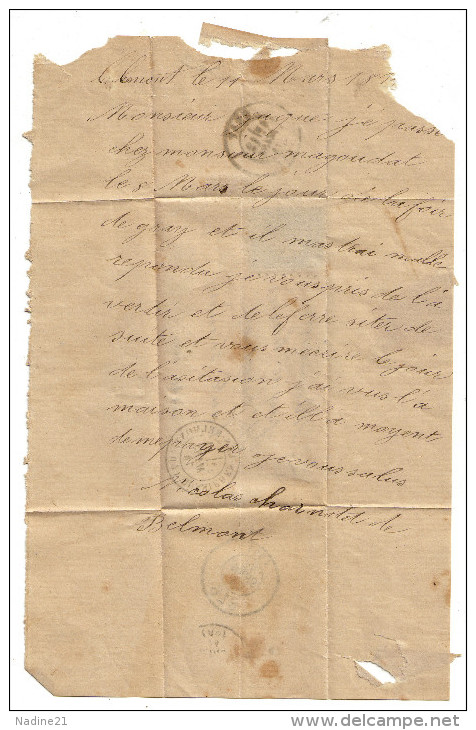 Belmont le 11 Mars 187
Monsieur je passe
chez monsieur magoudat
le 8 Mars le jour de la foir
de gray et il mas trai malle
repondu je vous pris de l'a
vertir et de le ferre siter de
suite et vous mecrire le jour
de l'asitasion j'ai vus l'a
maison et et ill a moyent
de me payer je vous salus
Nicolas de
Belmont
Nadine21
www.delcampe.net